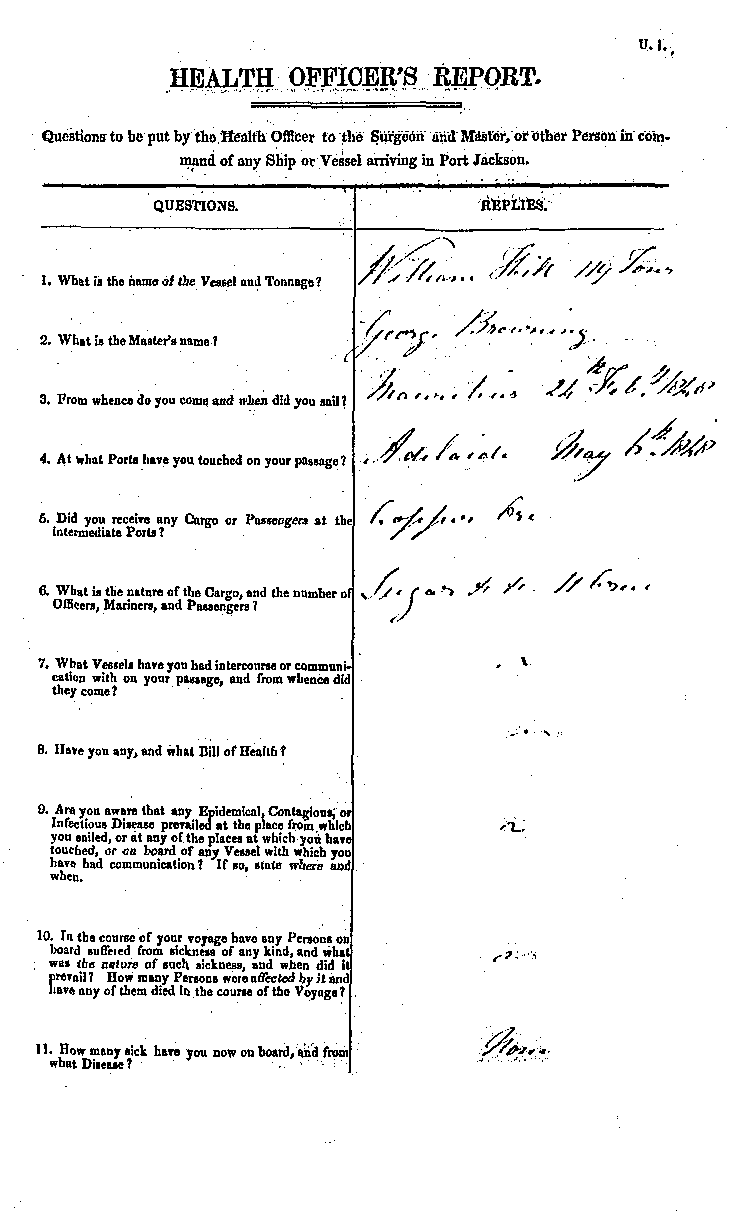 U. 1.
HEALTH OFFICER'S REPORT.
Questions to be put by the Health Officer to the Surgeon and Master, or other Person in com-
mand of any Ship or Vessel arriving in Port Jackson.
QUESTIONS.
REPLIES.
1. What is the name of the Vessel and Tonnage?
William 119 Tons
2. What is the Master's name?
George Browning
3. From whence do you come and when did you sail?
Mauritius 24th Feby 1848
4. At what Ports have you touched on your passage?
Adelaide May 6th 1848
5. Did you receive any Cargo or Passengers at the
intermediate Ports?
Copper Ore
6. What is the nature of the Cargo, and the number of
Officers, Mariners, and Passengers?
Sugar &c &c. 11 Crew
7. What Vessels have you had intercourse or communi-
cation with on your passage, and from whence did
they come?
8. Have you any, and what Bill of Health?
9. Are you aware that any Epidemical, Contagious, or
Infectious Disease prevailed at the place from which
you sailed, or at any of the places at which you have
touched, or on board of any Vessel with which you
have had communication? If so, state where and
when.
10. In the course of your voyage have any Persons on
board suffered from sickness of any kind, and what
was the nature of such sickness, and when did it
prevail? How many Persons were affected by it and
have any of them died in the course of the Voyage?
11. How many sick have you now on board, and from
what Disease?
None